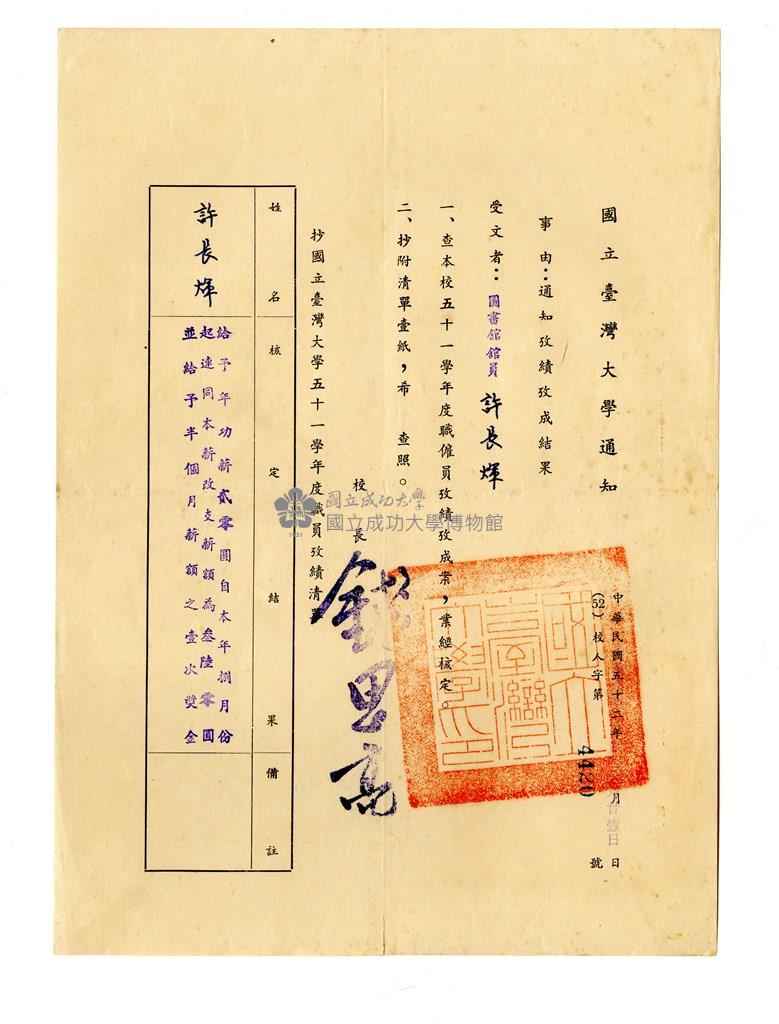 國立臺灣大學通知
中華民國五十二年 月廿壹日
(52)校人字第4420號
事由：通知攷績攷成結果
受文者：圖書館館員 許長煇
一、查本校五十一學年度職僱員攷績攷成案，業經核定。
二、抄附清單壹紙，希 查照。
校長 錢思亮
抄國立臺灣大學五十一學年度職員攷績清單
姓名 核定結果 備註
許長煇
給予年功薪貳零圓自本年捌月份
起連同本薪改支薪額為叁陸零圓
並給予半個月薪額之壹次獎金
國立成功大學
國立成功大學博物館
1931